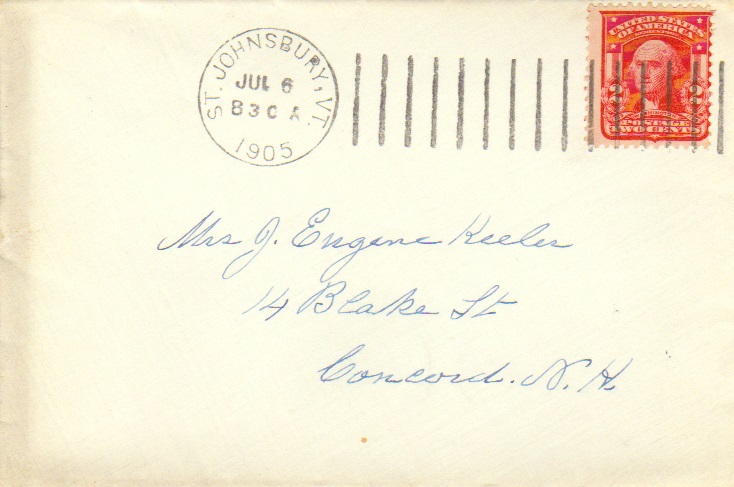 ST. JOHNSBURY, VT.
JUL 6
830 A
1905
UNITED STATES
OF AMERICA
2 2
POSTAGE
TWO CENTS
Mrs J. Eugene Keeler
14 Blake St
Concord. N. H.